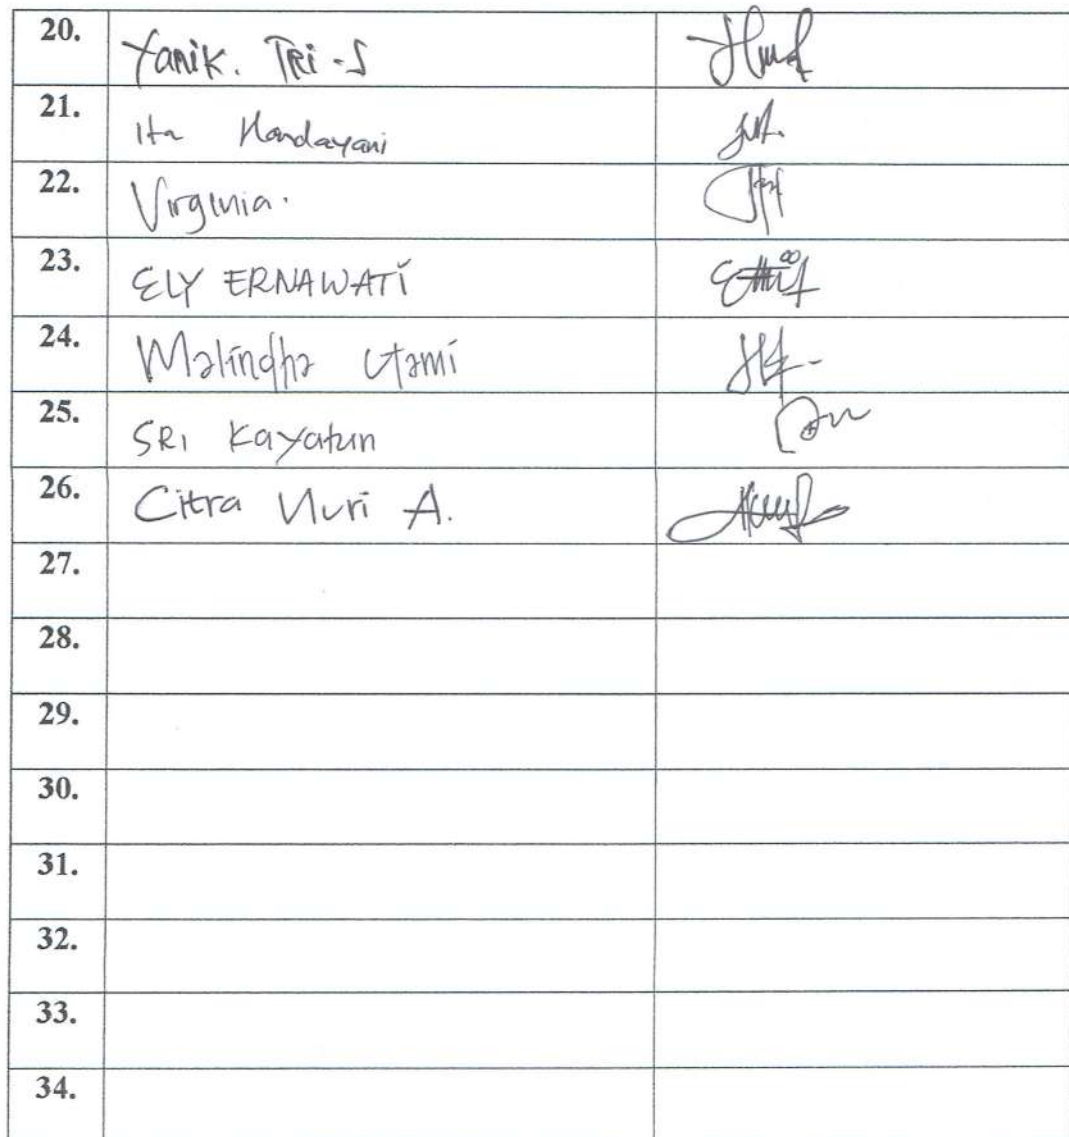 20. Yanik. Tri-S
21. Ita Handayani
22. Virginia.
23. ELY ERNAWATI
24. Malindha Utami
25. SRI Kayatun
26. Citra Nuri A.
27.
28.
29.
30.
31.
32.
33.
34.